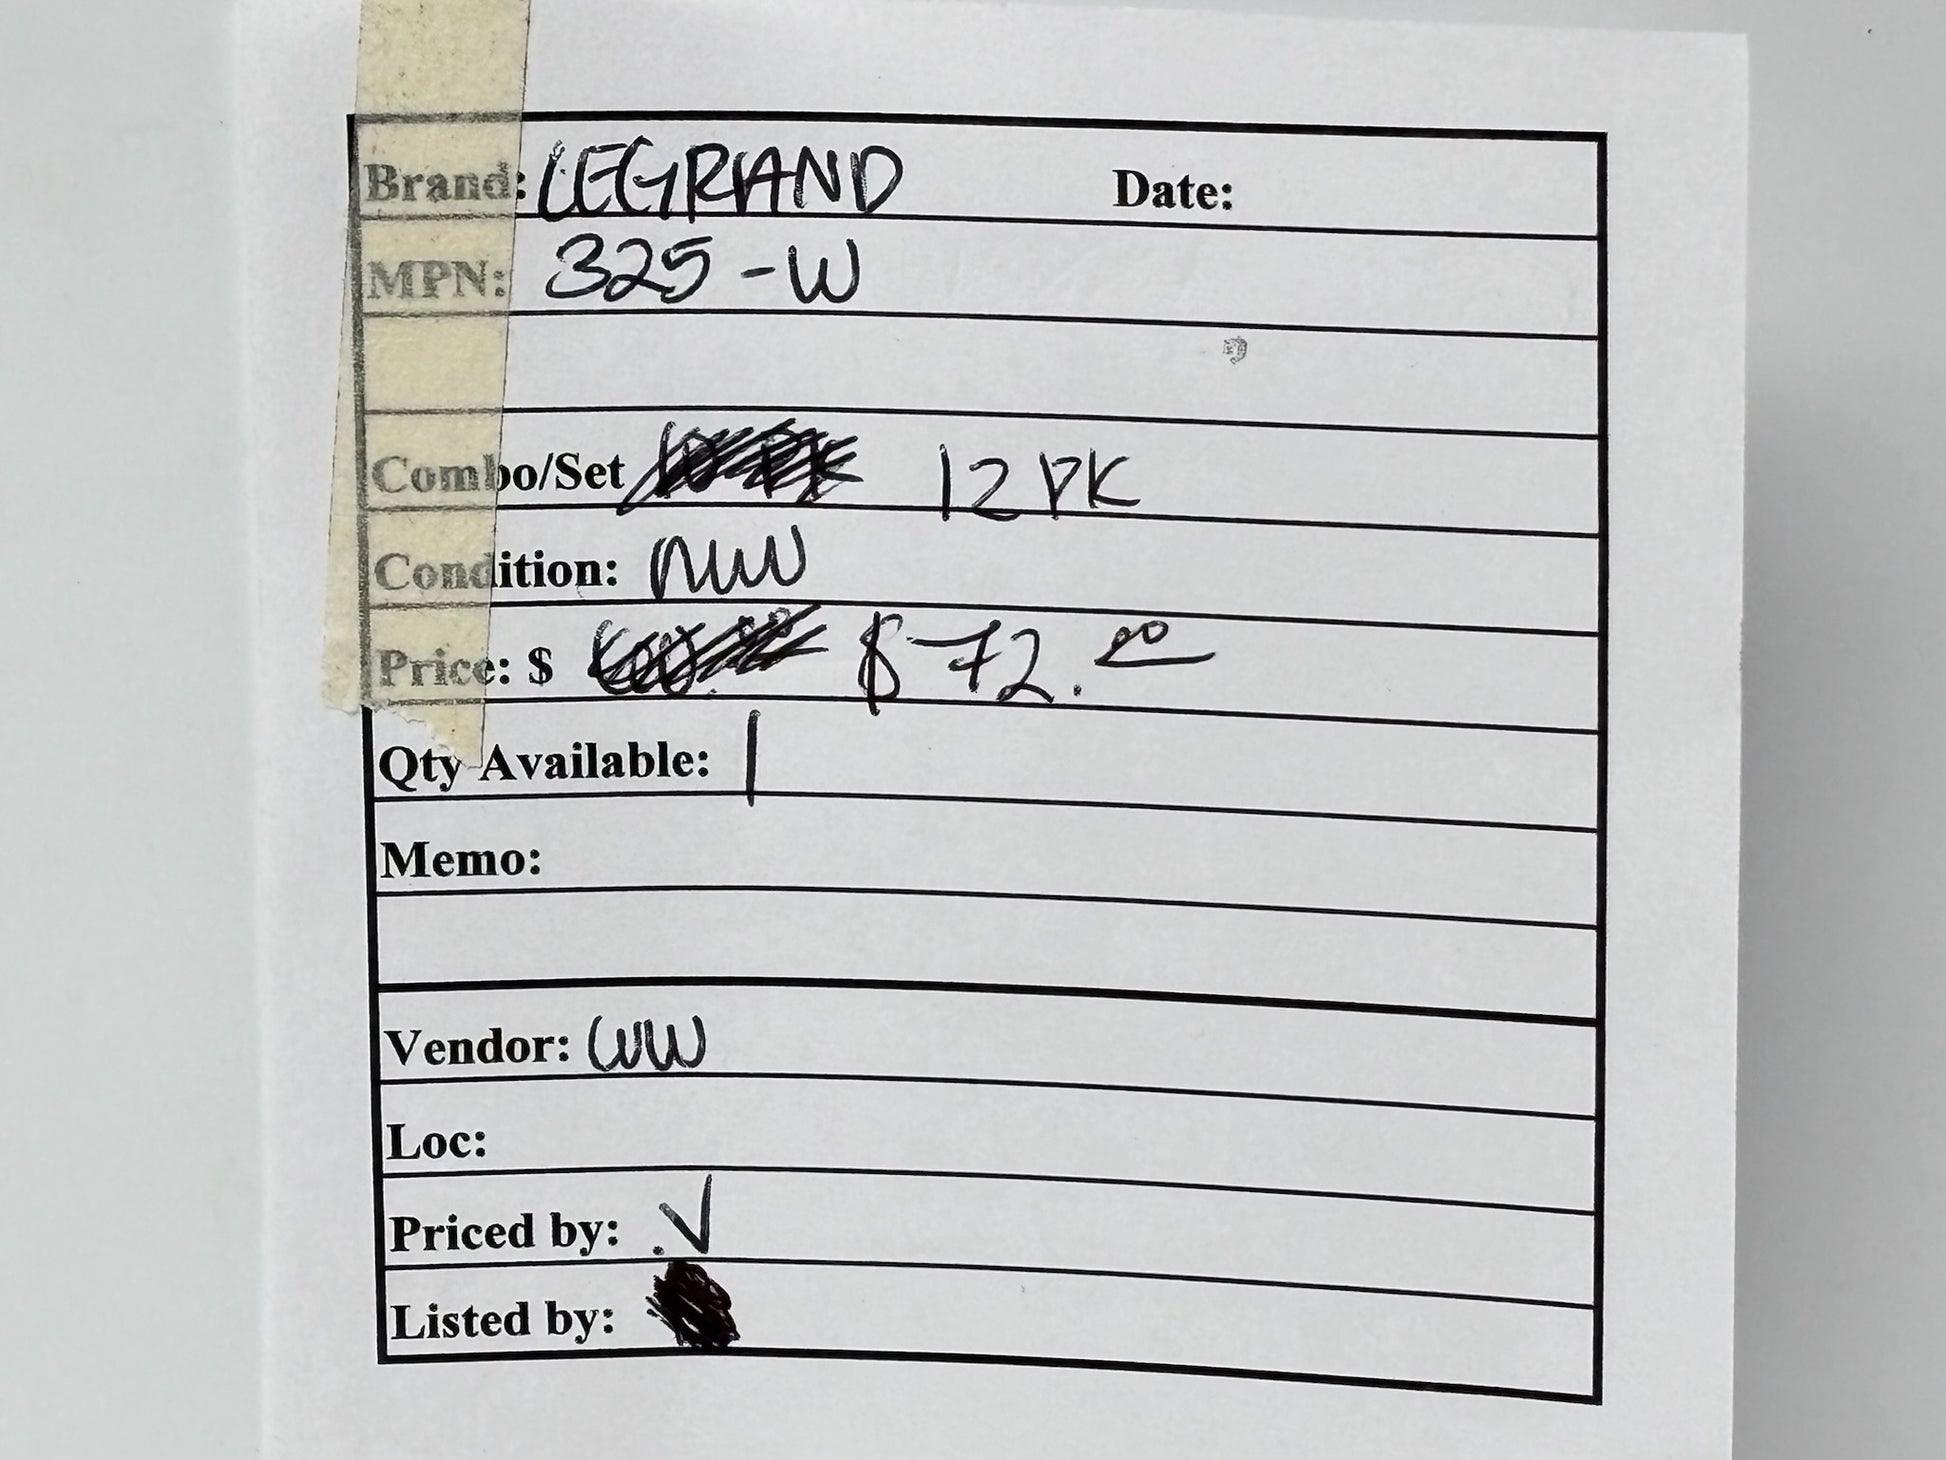 Brand: LEGRAND Date:
MPN: 325-W
Combo/Set 12 PK
Condition: NW
Price: $ $72.00
Qty Available: 1
Memo:
Vendor: WW
Loc:
Priced by: .V
Listed by: